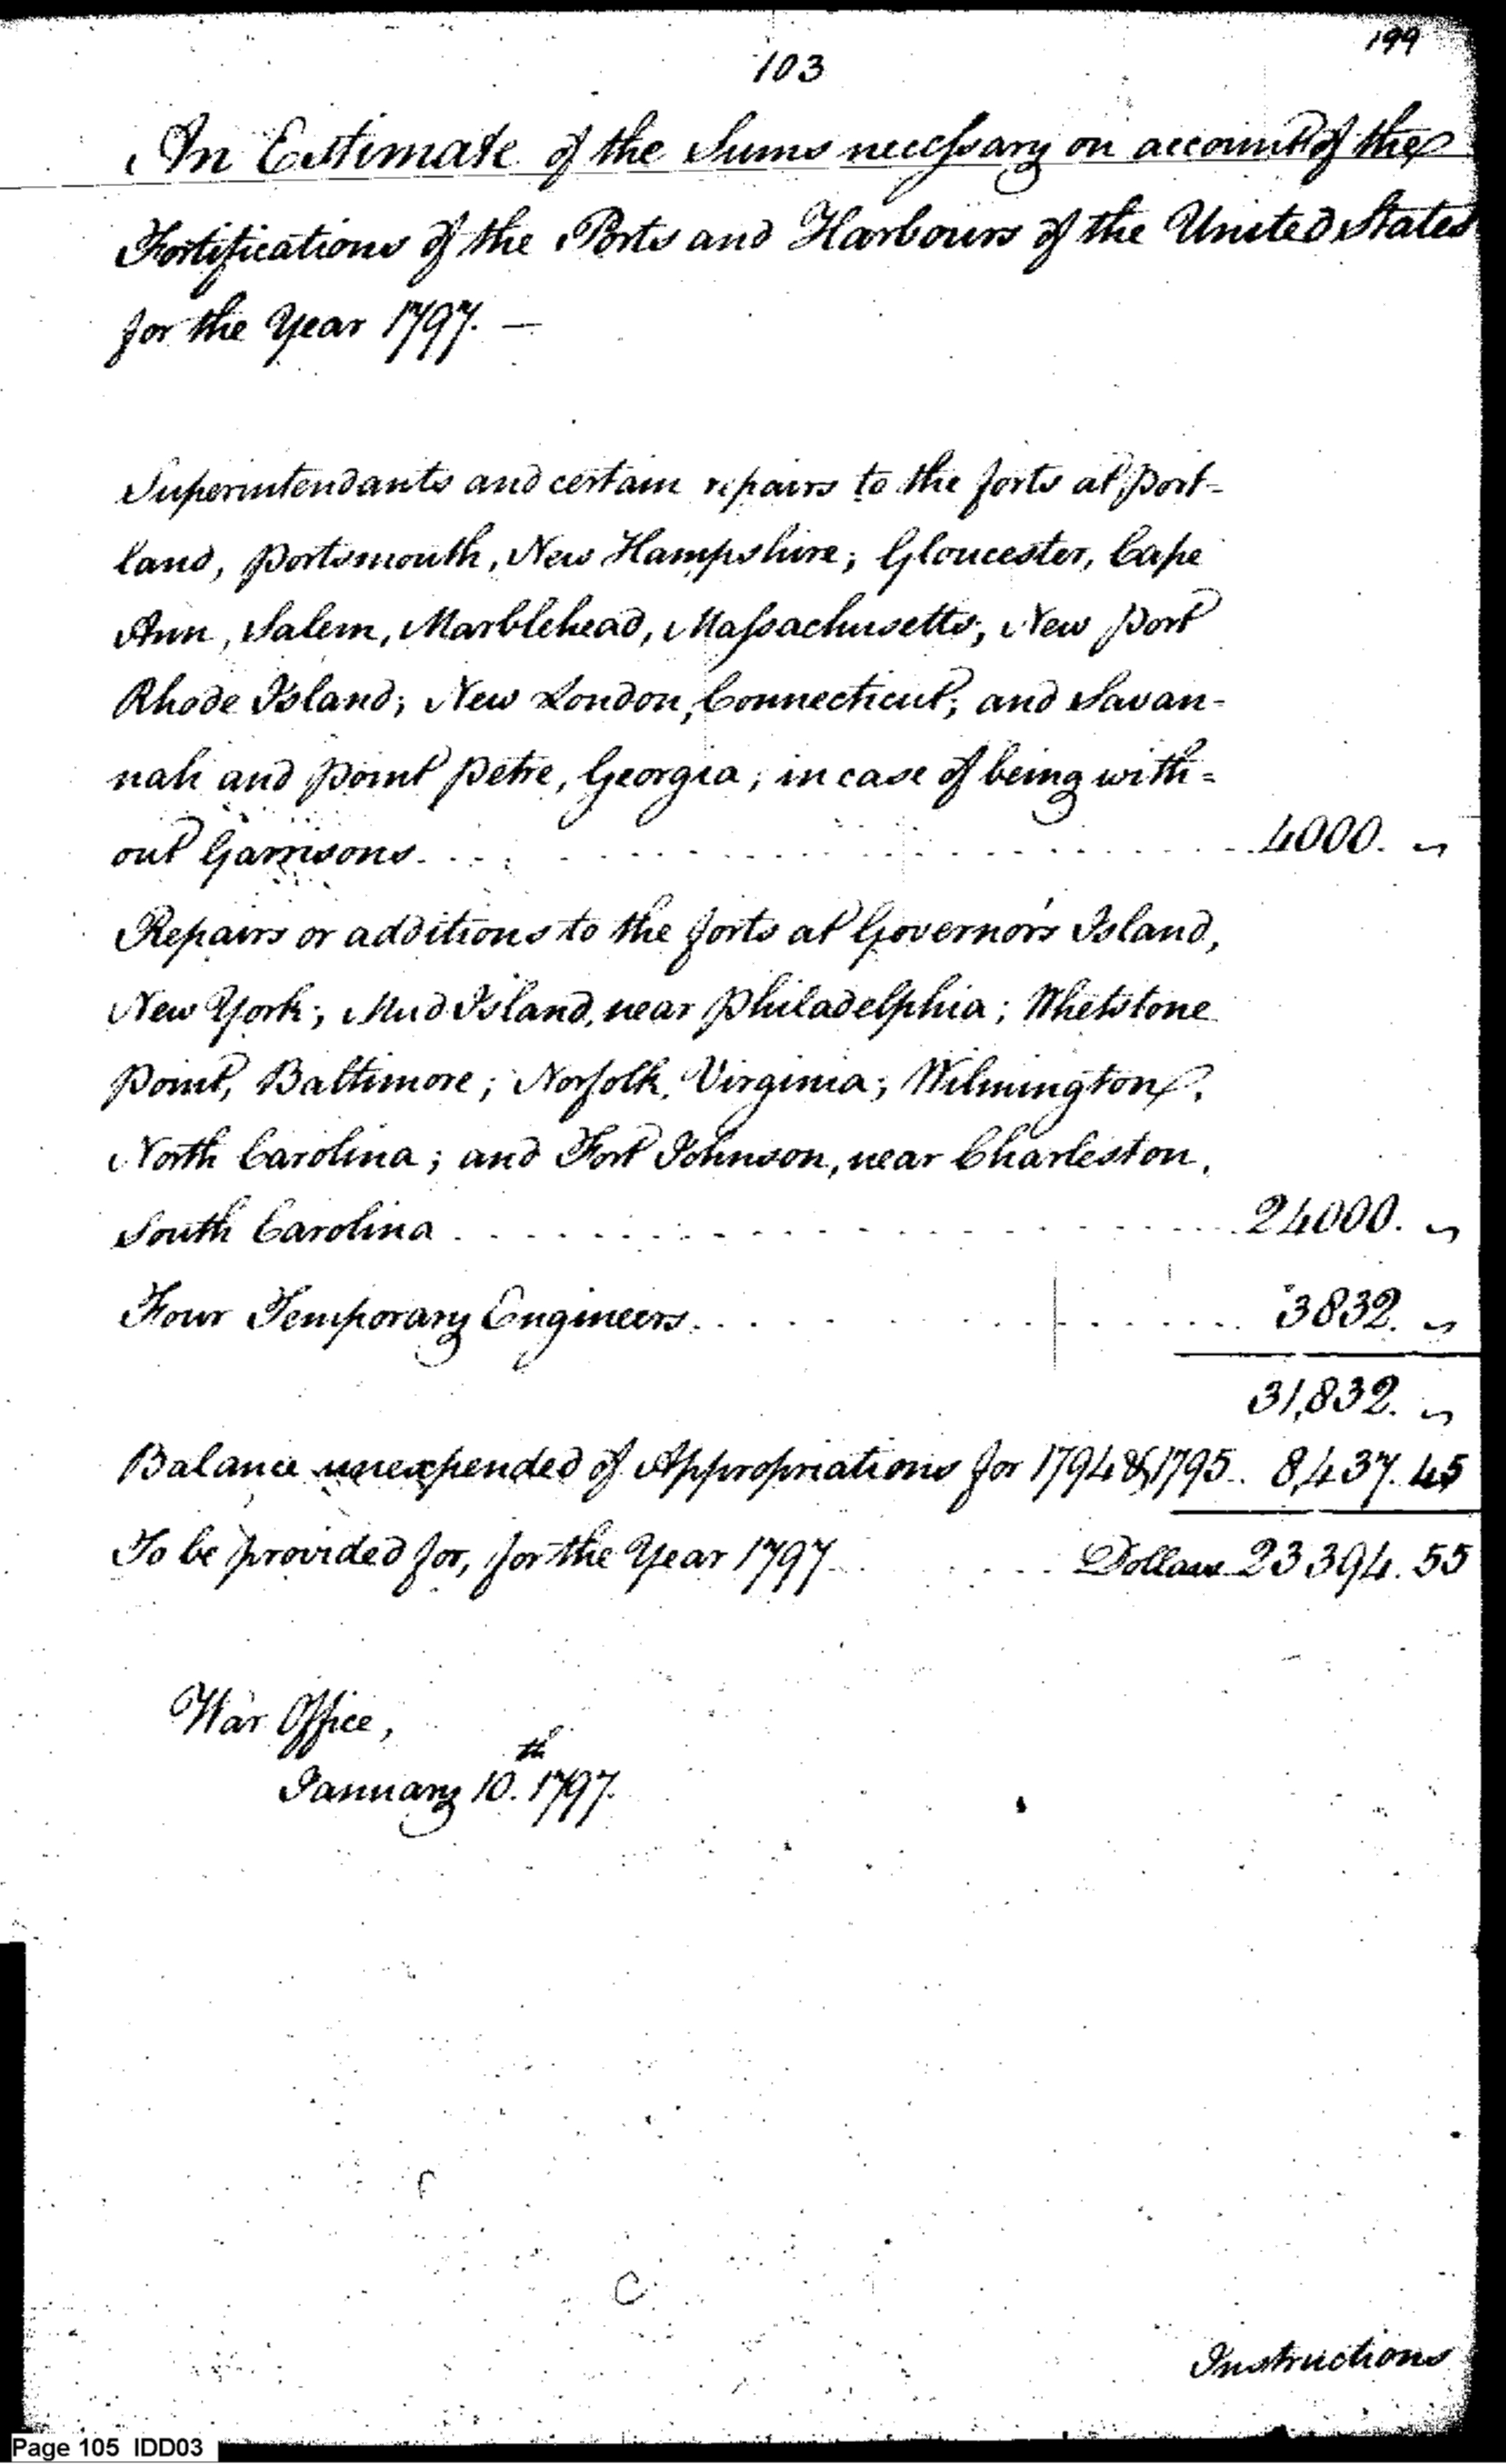 199
103
An Estimate of the Sums necessary on account of the
Fortifications of the Ports and Harbours of the United States
for the Year 1797. —
Superintendants and certain repairs to the forts at Port-
land, Portsmouth, New Hampshire; Gloucester, Cape
Ann, Salem, Marblehead, Massachusetts; New Port
Rhode Island; New London, Connecticut; and Savan-
nah and Point Petre, Georgia; in case of being with=
out Garrisons. . . . . . . . . . . . . . . . . . . . 4000. ~
Repairs or additions to the forts at Governor's Island,
New York; Mud Island, near Philadelphia; Whetstone
Point, Baltimore; Norfolk, Virginia; Wilmington,
North Carolina; and Fort Johnson, near Charleston,
South Carolina . . . . . . . . . . . . . . . . . . . 24000. ~
Four Temporary Engineers. . . . . . . . . . . . . . 3832. ~
31,832. ~
Balance unexpended of Appropriations for 1794 & 1795. . 8,437. 45
To be provided for, for the Year 1797 . . . . . . Dollars 23394. 55
War Office,
January 10.th 1797.
Instructions
Page 105 IDD03